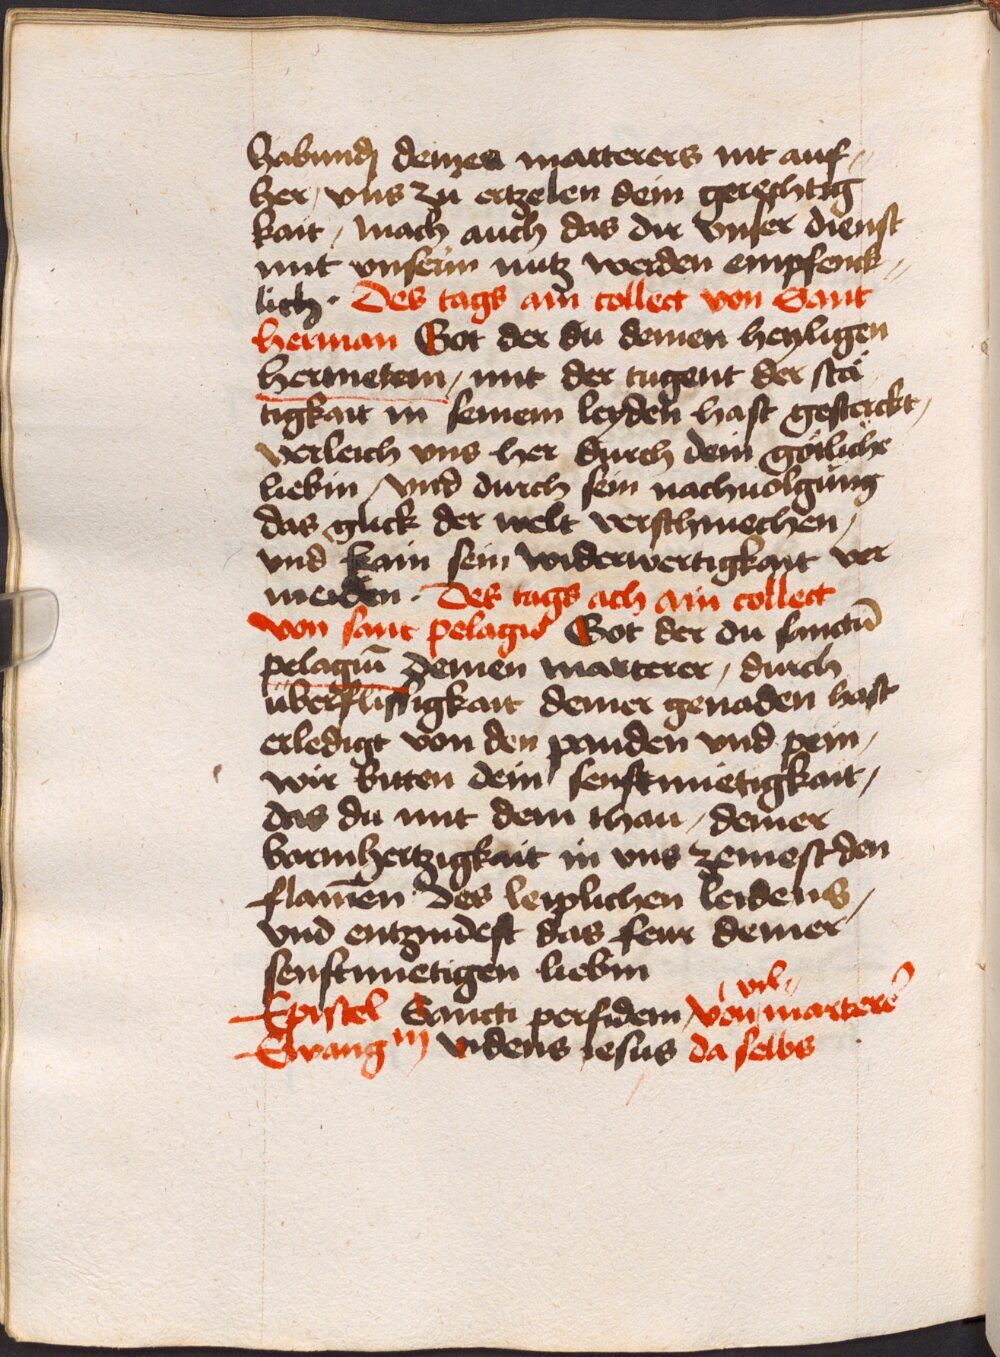 habund deines marterers nit auf⸗
her, vns zu ertzelen dein gerechtig
kait, mach auch das dir vnser dienst
mit vnserm nutz werden empfenck⸗
lich. Des tags ain collect von Sant
herman Got der du deinen heyligen
hermetem, mit der tugent der stä
tigkait in seinem leyden hast gesterckt,
verleich vns her durch dein götliche
liebin, vnd durch sein nachuolgung
das gluck der welt verschmechen,
vnd kain sein widerwertigkait ver
meiden. Des tags ach ain collect
von sant pelagiȝ Got der du sanctū
pelagiū deinen marterer, durch
überflissigkait deiner genaden hast
erledigt von den panden vnd pein,
wir bitten dein senftmietigkait,
das du mit dem thau, deiner
barmhertzigkait in vns zemest den
flam̄en des leiplichen leidens,
vnd entzindest das feur deiner
senftmietigen liebin
Epistel Sancti per fidem, von vil marterē
Ewangm̄ videns iesus da selbs